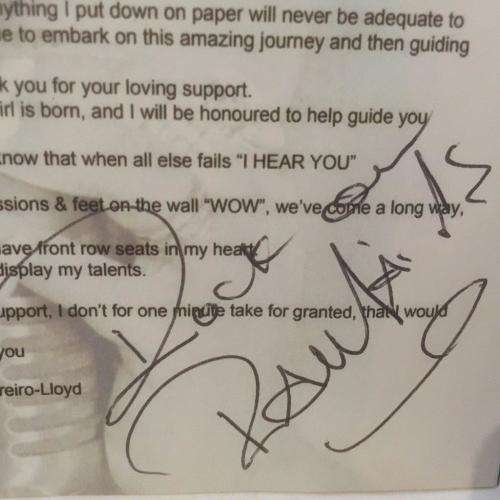 nything I put down on paper will never be adequate to
e to embark on this amazing journey and then guiding
k you for your loving support.
irl is born, and I will be honoured to help guide you
now that when all else fails "I HEAR YOU"
ssions & feet on the wall "WOW", we've come a long way,
ave front row seats in my heart
display my talents.
upport, I don't for one minute take for granted, that I would
you
reiro-Lloyd
Rock on